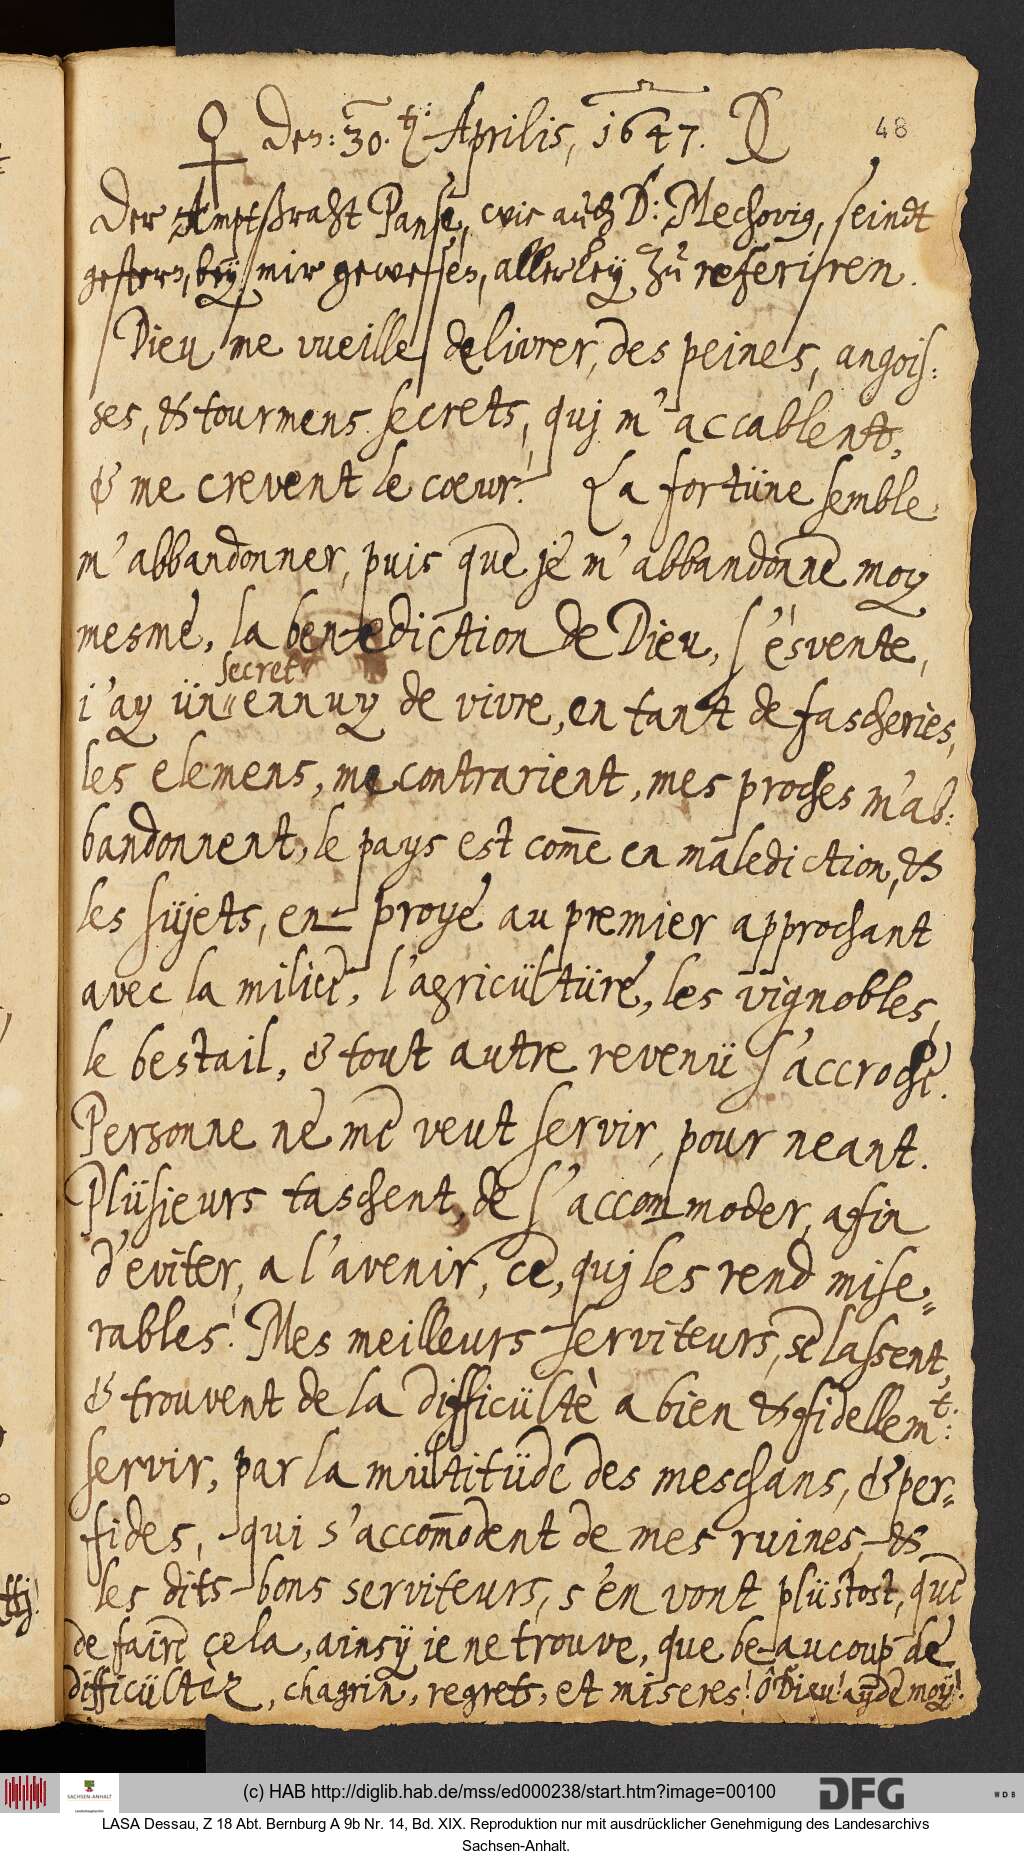 ♀ Den: 30. t: Aprilis, 1647. 48
Der Amptßraht Panse, wie auch D: Mechovig, seindt
gestern, bey mir gewesen, allerley zu referiren.
Dieu me vueille delivrer, des peines, angois:
ses, & tourmens secrets, quj m'accablent,
& me crevent le cœur! La fortüne semble
m'abbandonner, puis que je m'abbandonne moy
mesme, la benediction de Dieu, s'esvente,
secret
i'ay ün ennuy de vivre, en tant de fascheries,
les elemens, me contrarient, mes proches m'ab:
bandonnent, le pays est com̄e en malediction, &
les süjets, en proye au premier approchant
avec la milice, l'agricültüre, les vignobles,
le bestail, & tout autre revenü s'accroche.
Personne ne me veut servir, pour neant.
Plüsieurs taschent, de s'accommoder, afin
d'eviter, a l'avenir, ce, quj les rend mise„
rables! Mes meilleurs serviteurs, se lassent,
& trouvent de la difficültè a bien & fidellemt:
servir, par la mültitüde des meschans, & per„
fides, qui s'accom̄odent de mes ruines, &
les dits bons serviteurs, s'en vont plüstost, que
de faire cela, ainsÿ ie ne trouve, que beaucoup de
difficültèz, chagrin, regrets, et miseres! ô Dieu! ayde moy!
(c) HAB http://diglib.hab.de/mss/ed000238/start.htm?image=00100
SACHSEN-ANHALT
DFG
WDB
LASA Dessau, Z 18 Abt. Bernburg A 9b Nr. 14, Bd. XIX. Reproduktion nur mit ausdrücklicher Genehmigung des Landesarchivs
Sachsen-Anhalt.